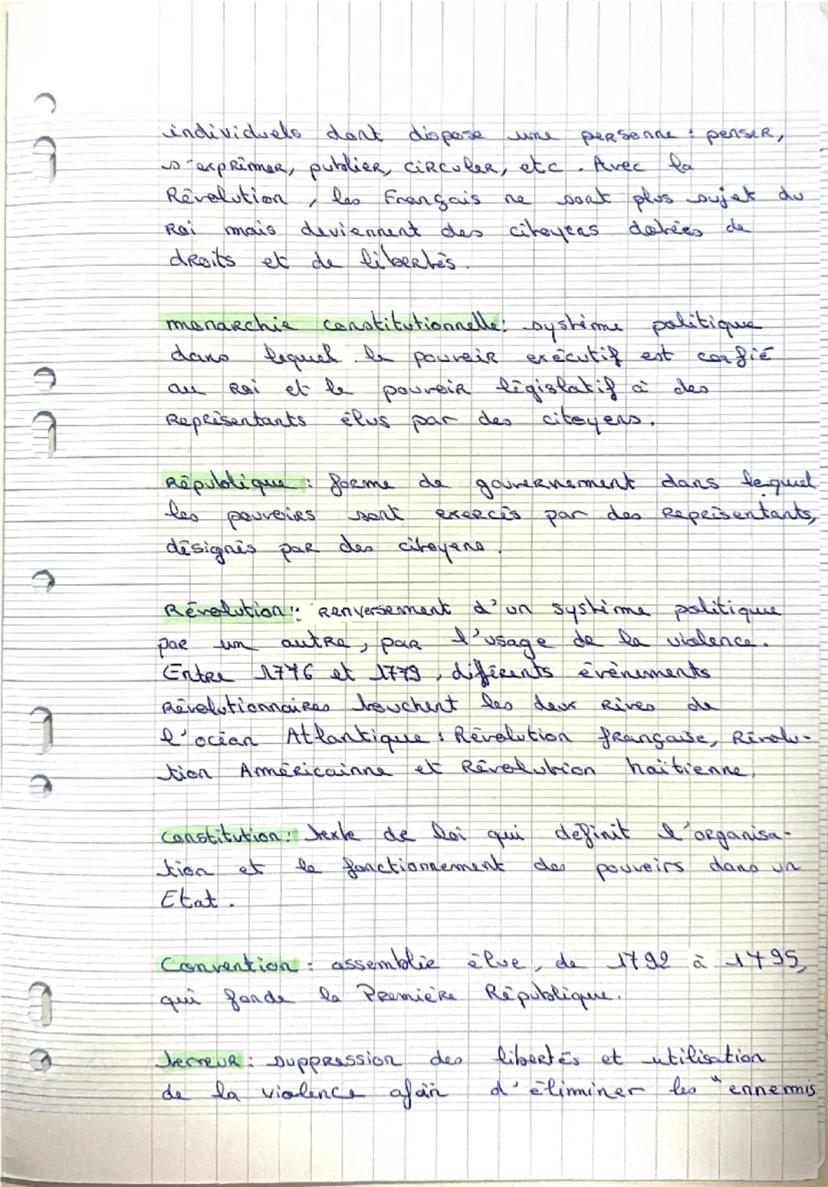 individuels dont dispose une personne : penser,
s'exprimer, publier, circuler, etc. Avec la
Révolution, les Français ne sont plus sujet du
Roi mais deviennent des citoyens dotées de
droits et de libertés.
monarchie constitutionnelle : système politique
dans lequel le pouvoir exécutif est confié
au Roi et le pouvoir législatif à des
Représentants élus par des citoyens.
République : forme de gouvernement dans lequel
les pouvoirs sont exercés par des Représentants,
désignés par des citoyens.
Révolution : Renversement d'un système politique
par un autre, par l'usage de la violence.
Entre 1776 et 1779, différents évènements
Révolutionnaires touchent les deux Rives de
l'océan Atlantique : Révolution française, Révolu-
tion Américainne et Révolution haïtienne.
Constitution : texte de loi qui définit l'organisa-
tion et le fonctionnement des pouvoirs dans un
Etat.
Convention : assemblée élue, de 1792 à 1795,
qui fonde la Première République.
terreur : suppression des libertés et utilisation
de la violence afin d'éliminer les "ennemis